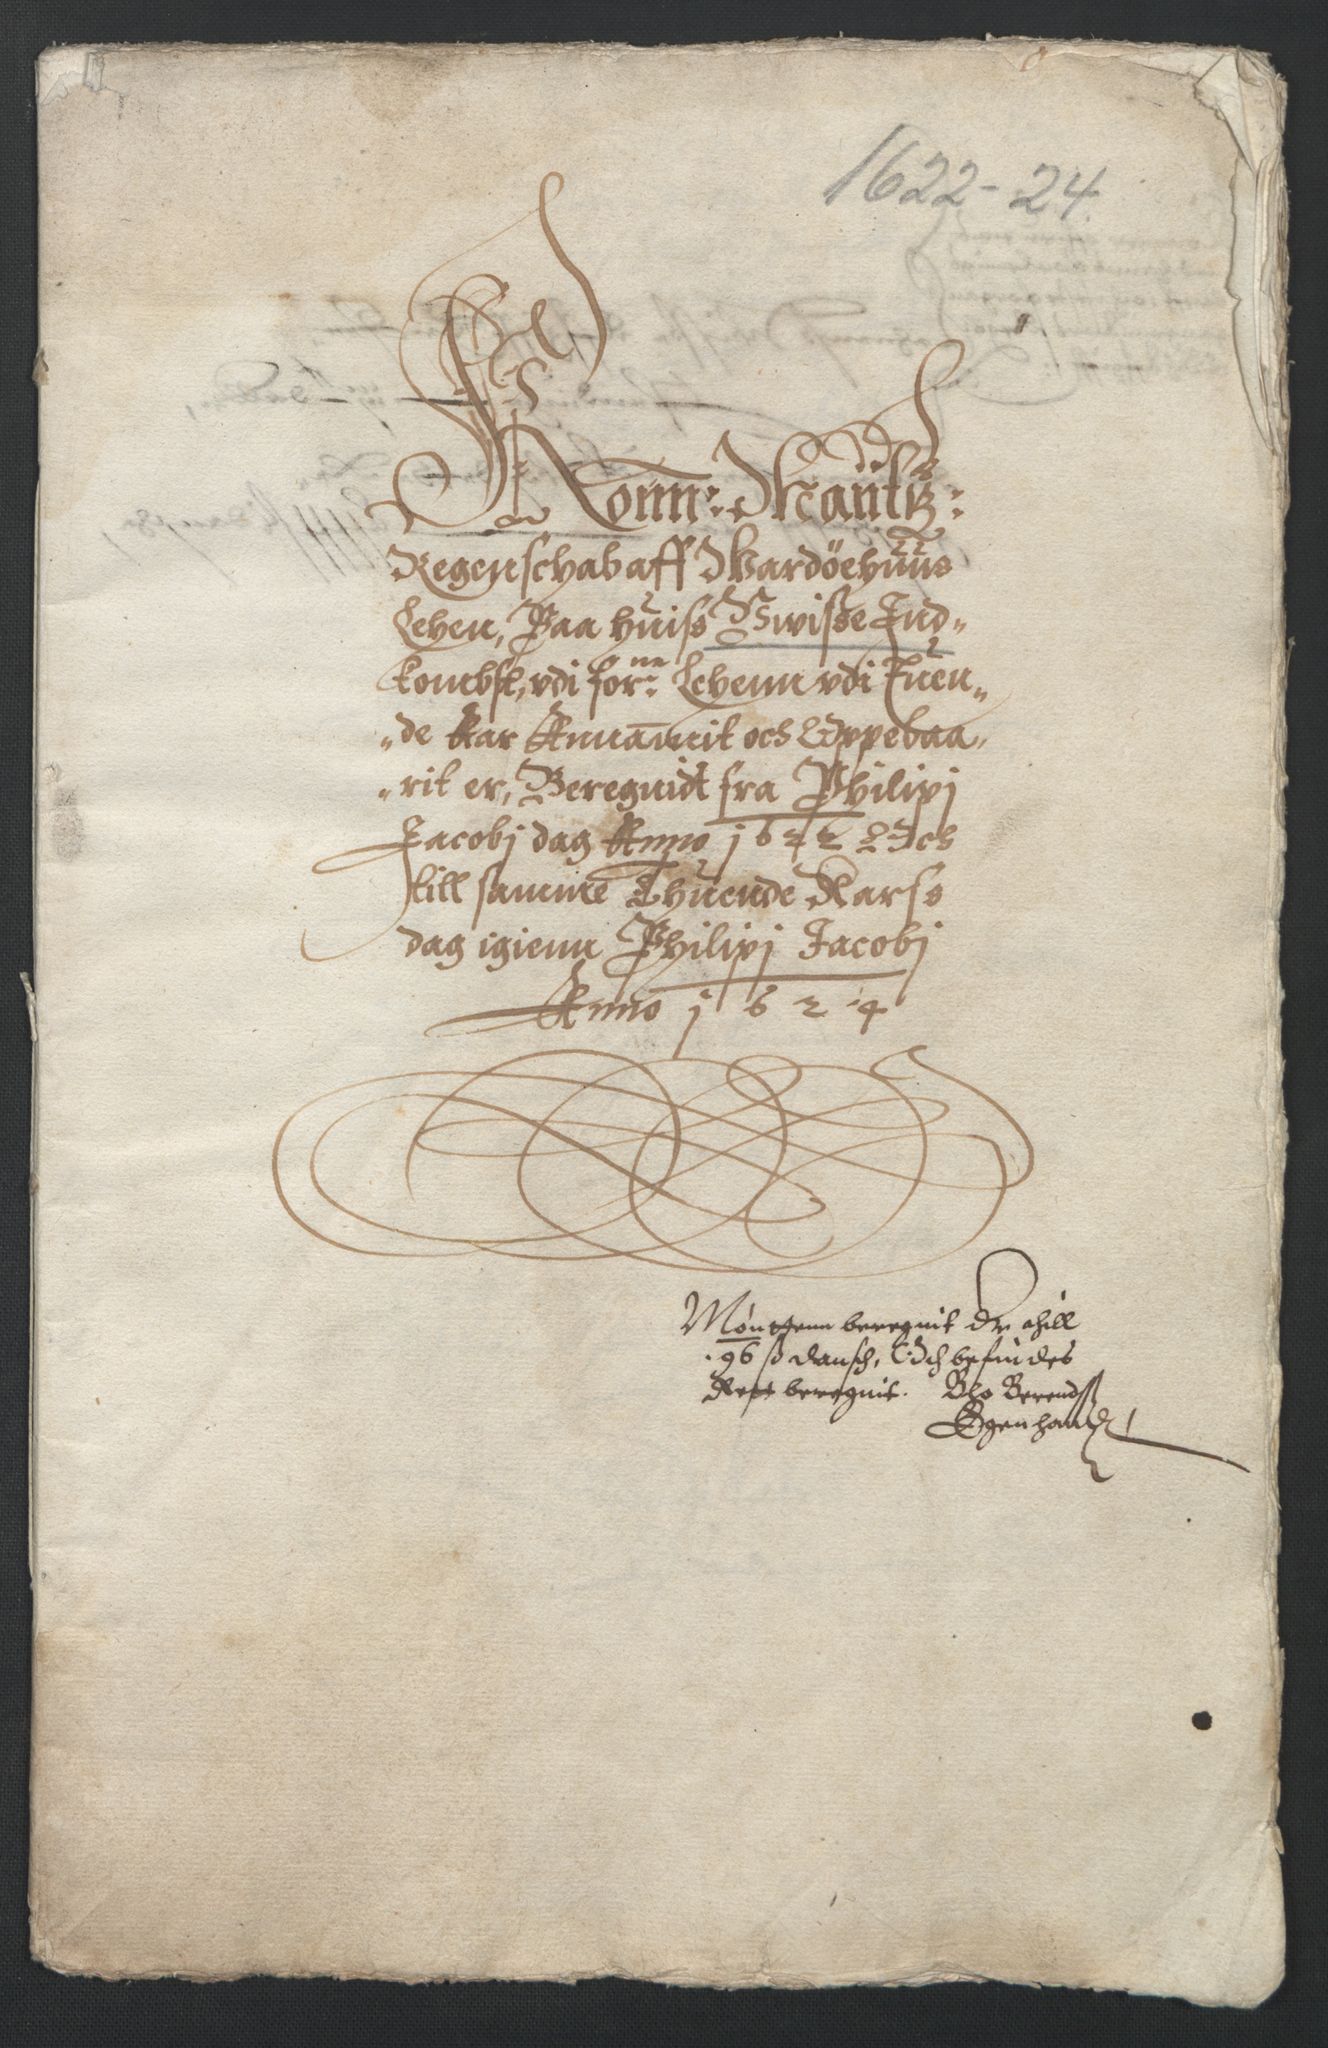 1622-24
Konn: Maÿtz:
Regenschab aff Wardöehuus
Lehen, Paa huiss Wisse Ind„
kombst, vdi forne: Lehenn vdi Tuen„
„de Aar Annammit och Oppebaa„
„rit er, Beregnidt fra Philipj
Jacobj dag Anno 1622 Och
till samme Thuende Aarss
dag igienn Philipj Jacobj
Anno 1624
Møntzenn beregnit Dr
96 ß dansch, Och befindes
Rett beregnit. Berendß
Egenhandt